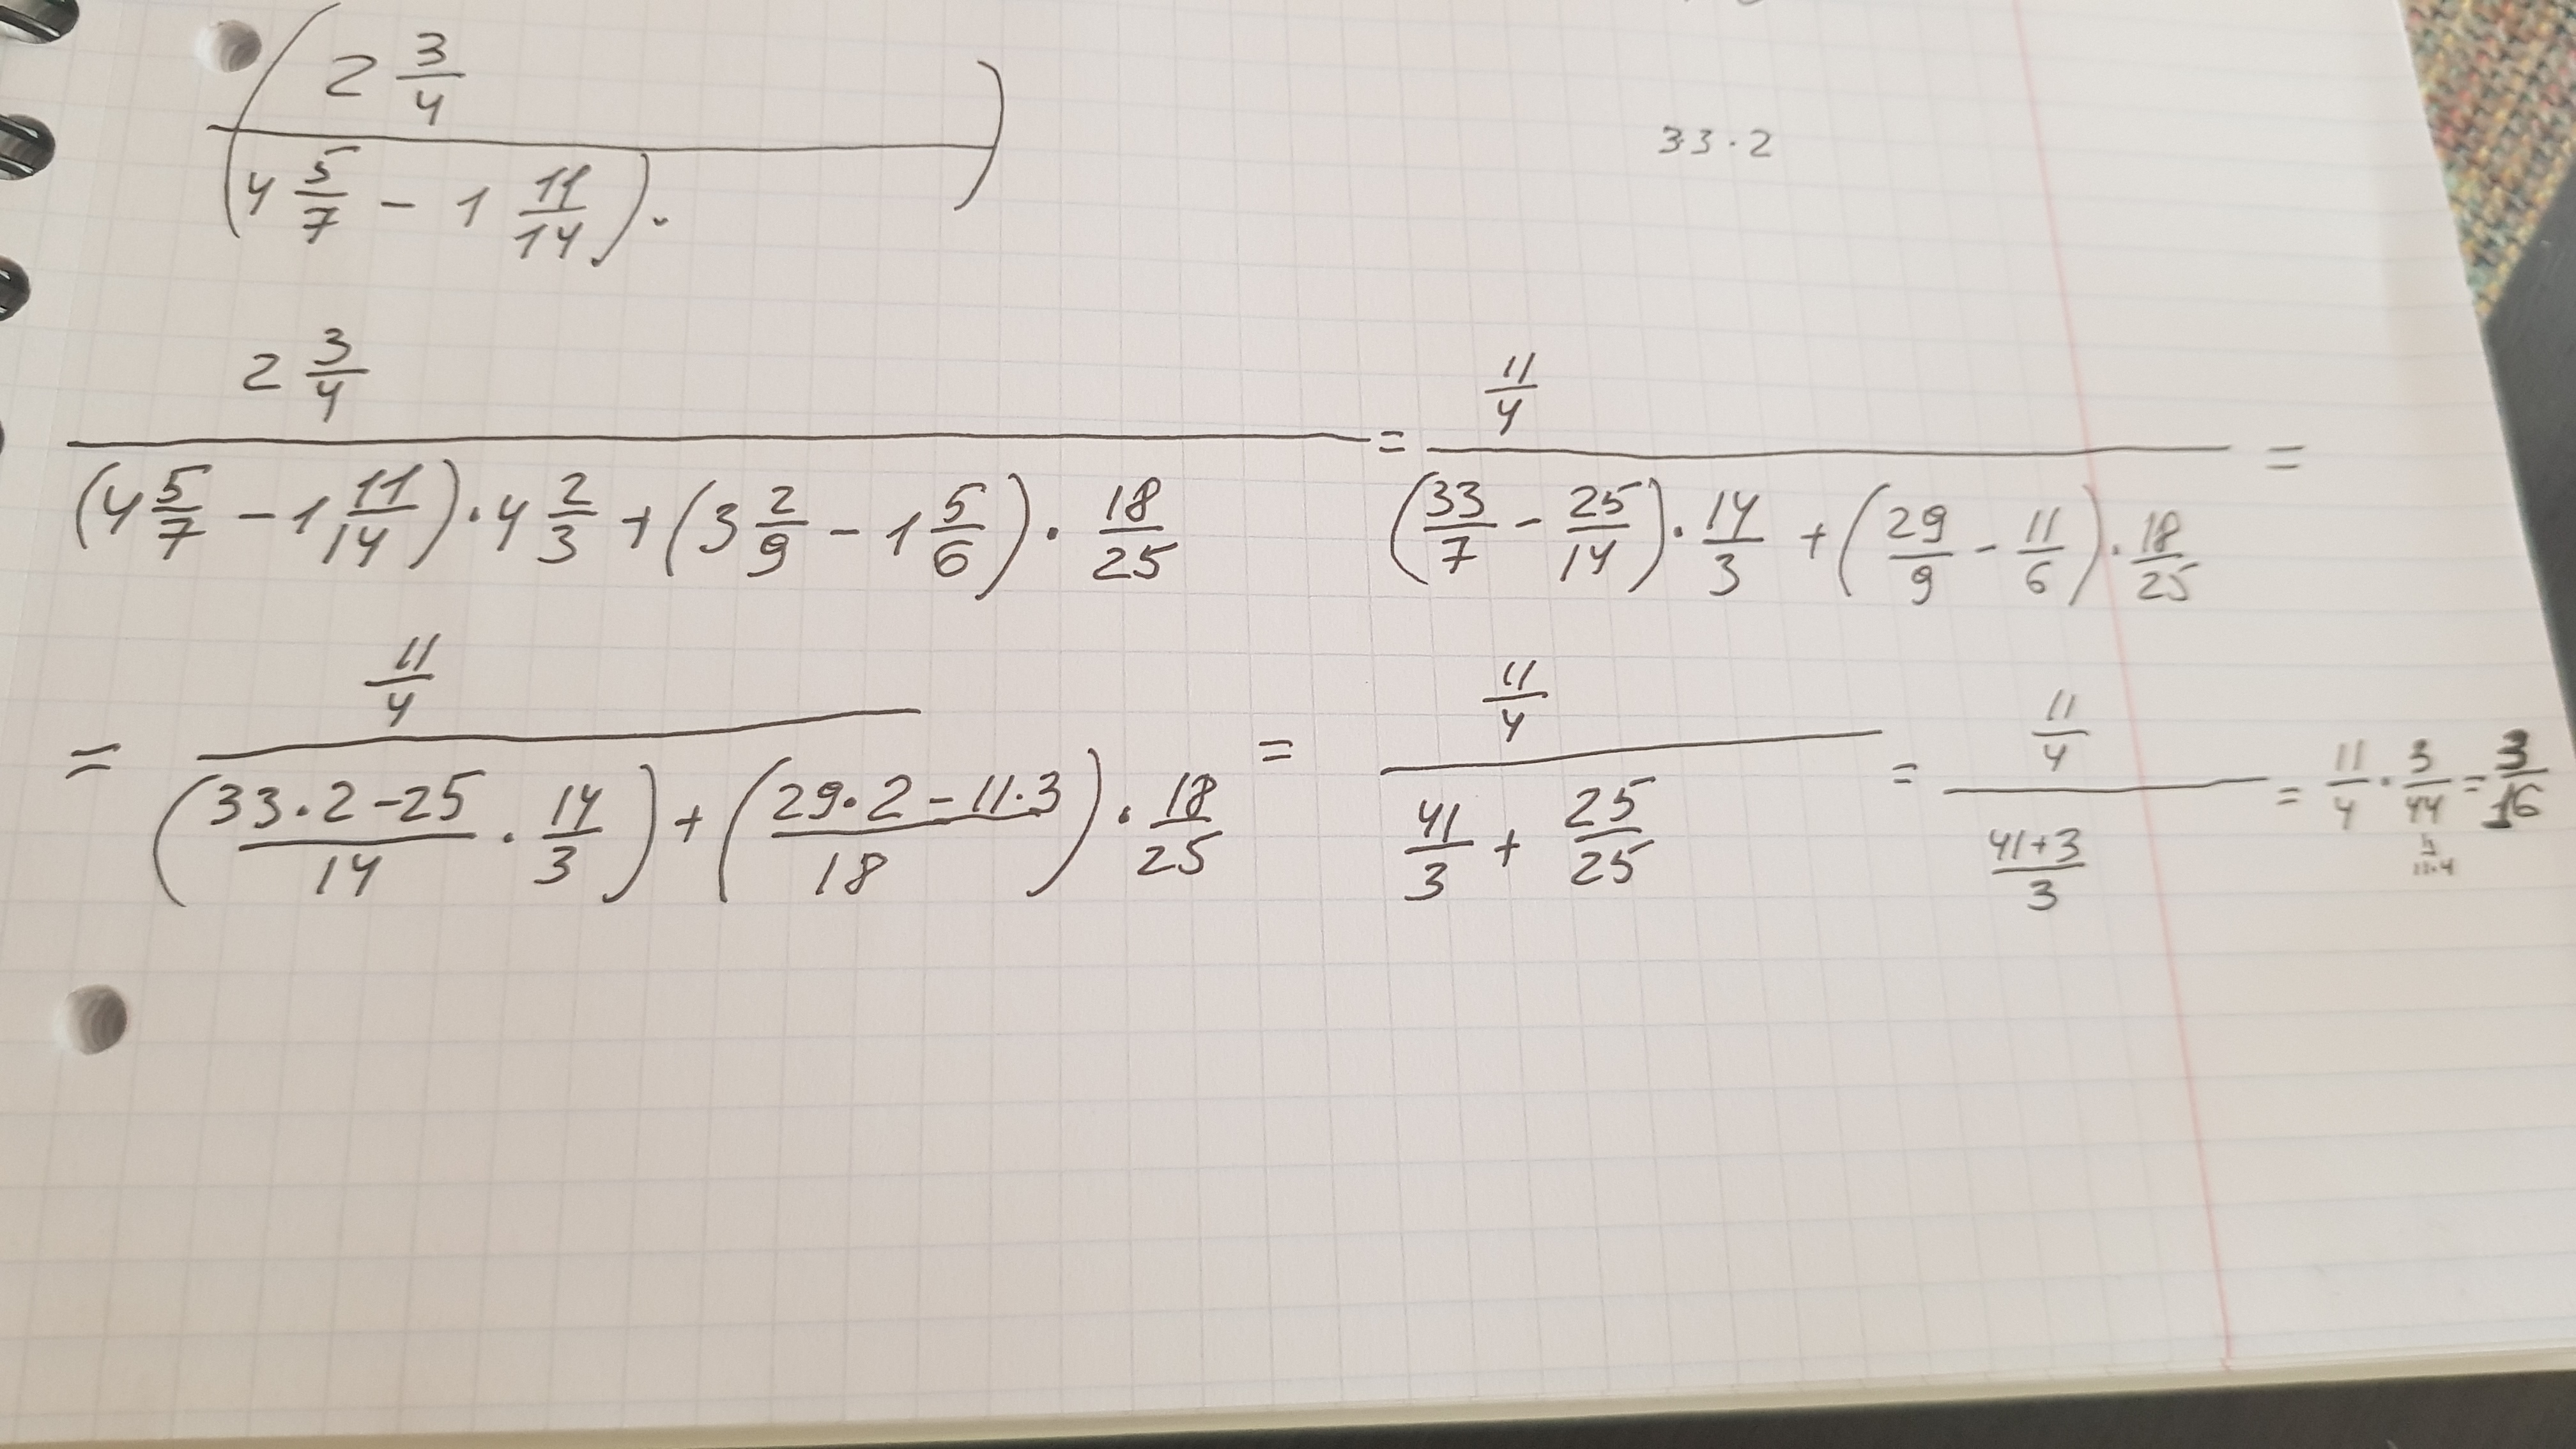 ( 2 3/4
/ (4 5/7 - 1 11/14) · )
33·2
2 3/4 / (4 5/7 - 1 11/14) · 4 2/3 + (3 2/9 - 1 5/6) · 18/25 = 11/4 / (33/7 - 25/14) · 14/3 + (29/9 - 11/6) · 18/25 =
= 11/4 / (33·2-25/14 · 14/3) + (29·2-11·3/18) · 18/25 = 11/4 / 41/3 + 25/25 = 11/4 / 41+3/3 = 11/4 · 3/44 = 3/16
11·4